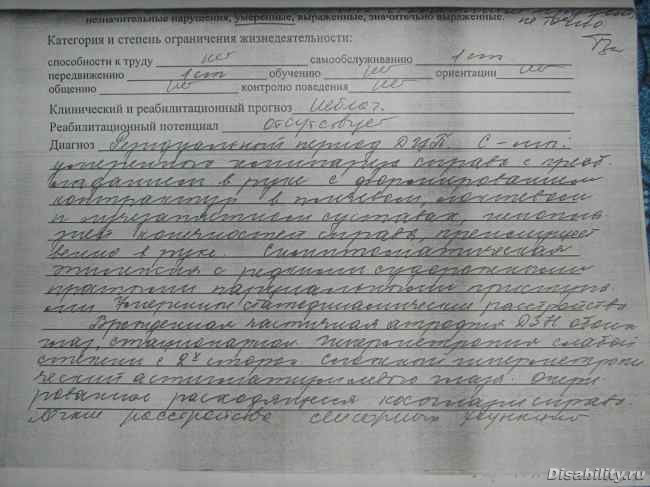 незначительные нарушения, умеренные, выраженные, значительно выраженные.
не точно
Категория и степень ограничения жизнедеятельности:
способности к труду нет самообслуживанию 1 ст
передвижению 1 ст обучению нет ориентации нет
общению нет контролю поведения нет
Клинический и реабилитационный прогноз Неблаг.
Реабилитационный потенциал отсутствует
Диагноз Резидуальный период ДЦП. С-м
умеренного гемипареза справа с преоб
ладанием в руке с формированием
контрактур в плечевом, локтевом
и лучезапястном суставах,
конечностей справа,
венно в руке. Симптоматическая
эпилепсия с редкими судорожными
простыми парциальными приступа
ми Умеренные статодинамические расстройства
Врожденная частичная атрофия ДЗН обоих
глаз, стационарная гиперметропия слабой
степени с 2х сторон Сложный гиперметропи
ческий астигматизм левого глаза Опери
рованное расходящееся косоглазие справа
Легкие расстройства сенсорных функций
Disability.ru